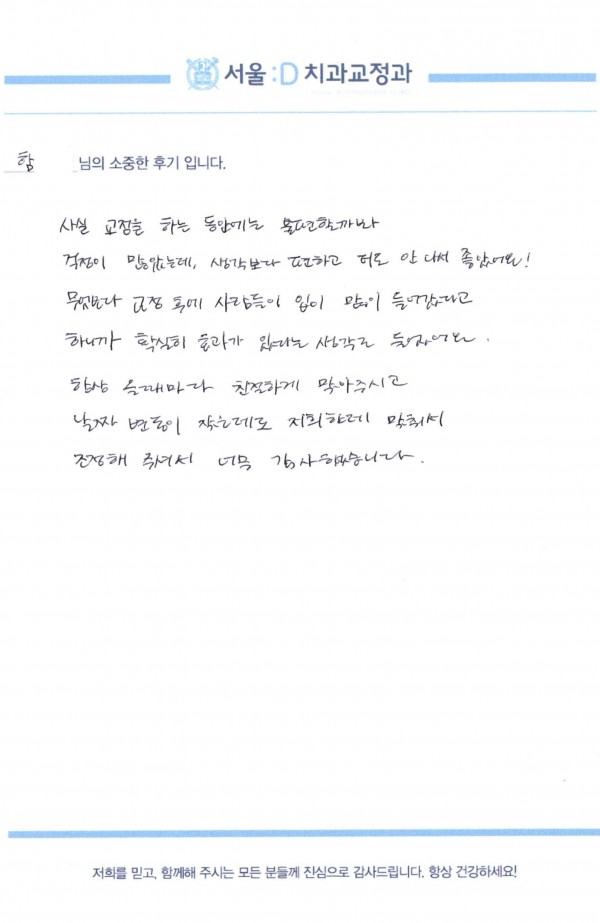 서울:D 치과교정과
함 님의 소중한 후기 입니다.
사실 교정을 하는 동안에는 불편할까봐
걱정이 많았는데, 생각보다 편하고 티도 안 나서 좋았어요!
무엇보다 교정 후에 사람들이 입이 많이 들어갔다고
하니까 확실히 효과가 있다는 생각도 들었어요.
항상 올때마다 친절하게 맞아주시고
날짜 변동이 잦은데도 저희한테 맞춰서
조정해 주셔서 너무 감사했습니다.
저희를 믿고, 함께해 주시는 모든 분들께 진심으로 감사드립니다. 항상 건강하세요!